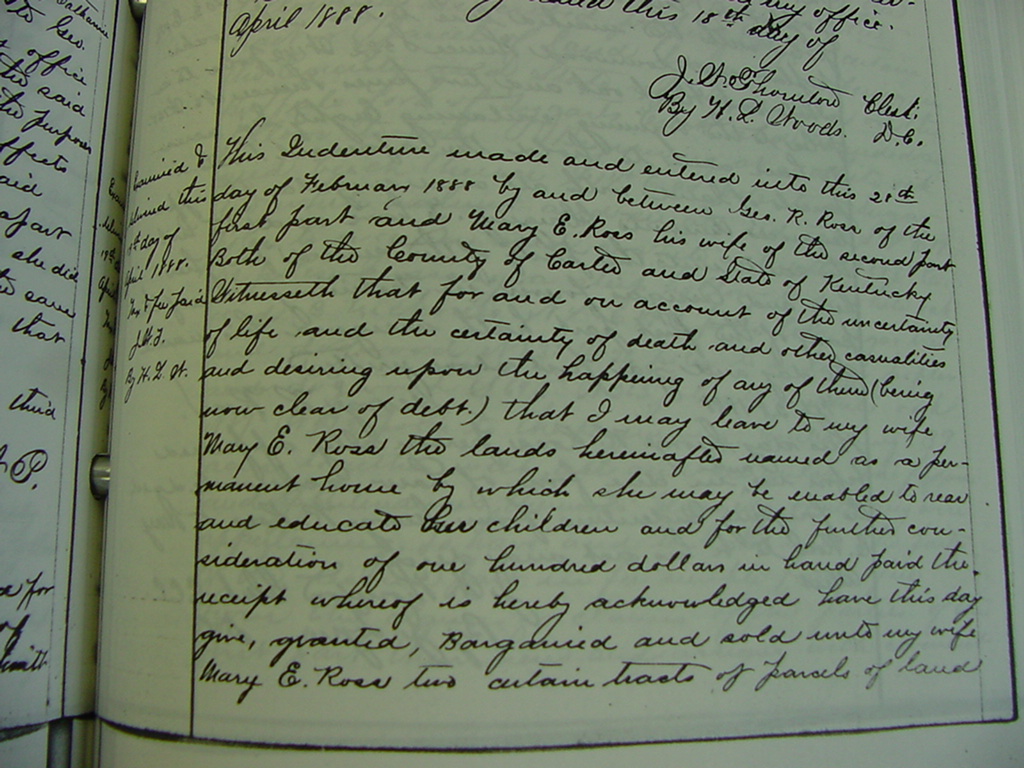 my office.
this 18th day of
April 1888.
J. W. Thornton Clerk.
By H. L. Woods. D.C.
This Indenture made and entered into this 28th
day of February 1888 by and between Geo. R. Ross of the
first part and Mary E. Ross his wife of the second part
Both of the County of Carter and State of Kentucky
Witnesseth that for and on account of the uncertainty
of life and the certainty of death and other casualities
and desiring upon the happening of any of them (being
now clear of debt.) that I may leave to my wife
Mary E. Ross the lands hereinafter named as a per-
manent home by which she may be enabled to rear
and educate her children and for the further con-
sideration of one hundred dollars in hand paid the
receipt whereof is hereby acknowledged have this day
give, granted, Bargained and sold unto my wife
Mary E. Ross two certain tracts of parcels of land
this
day of
April 1888.
Tax & fee paid
J.W.T.
By H. L. W.
to Geo.
office
the said
the purposes
part
she did
the same
that
third
P.
for
of